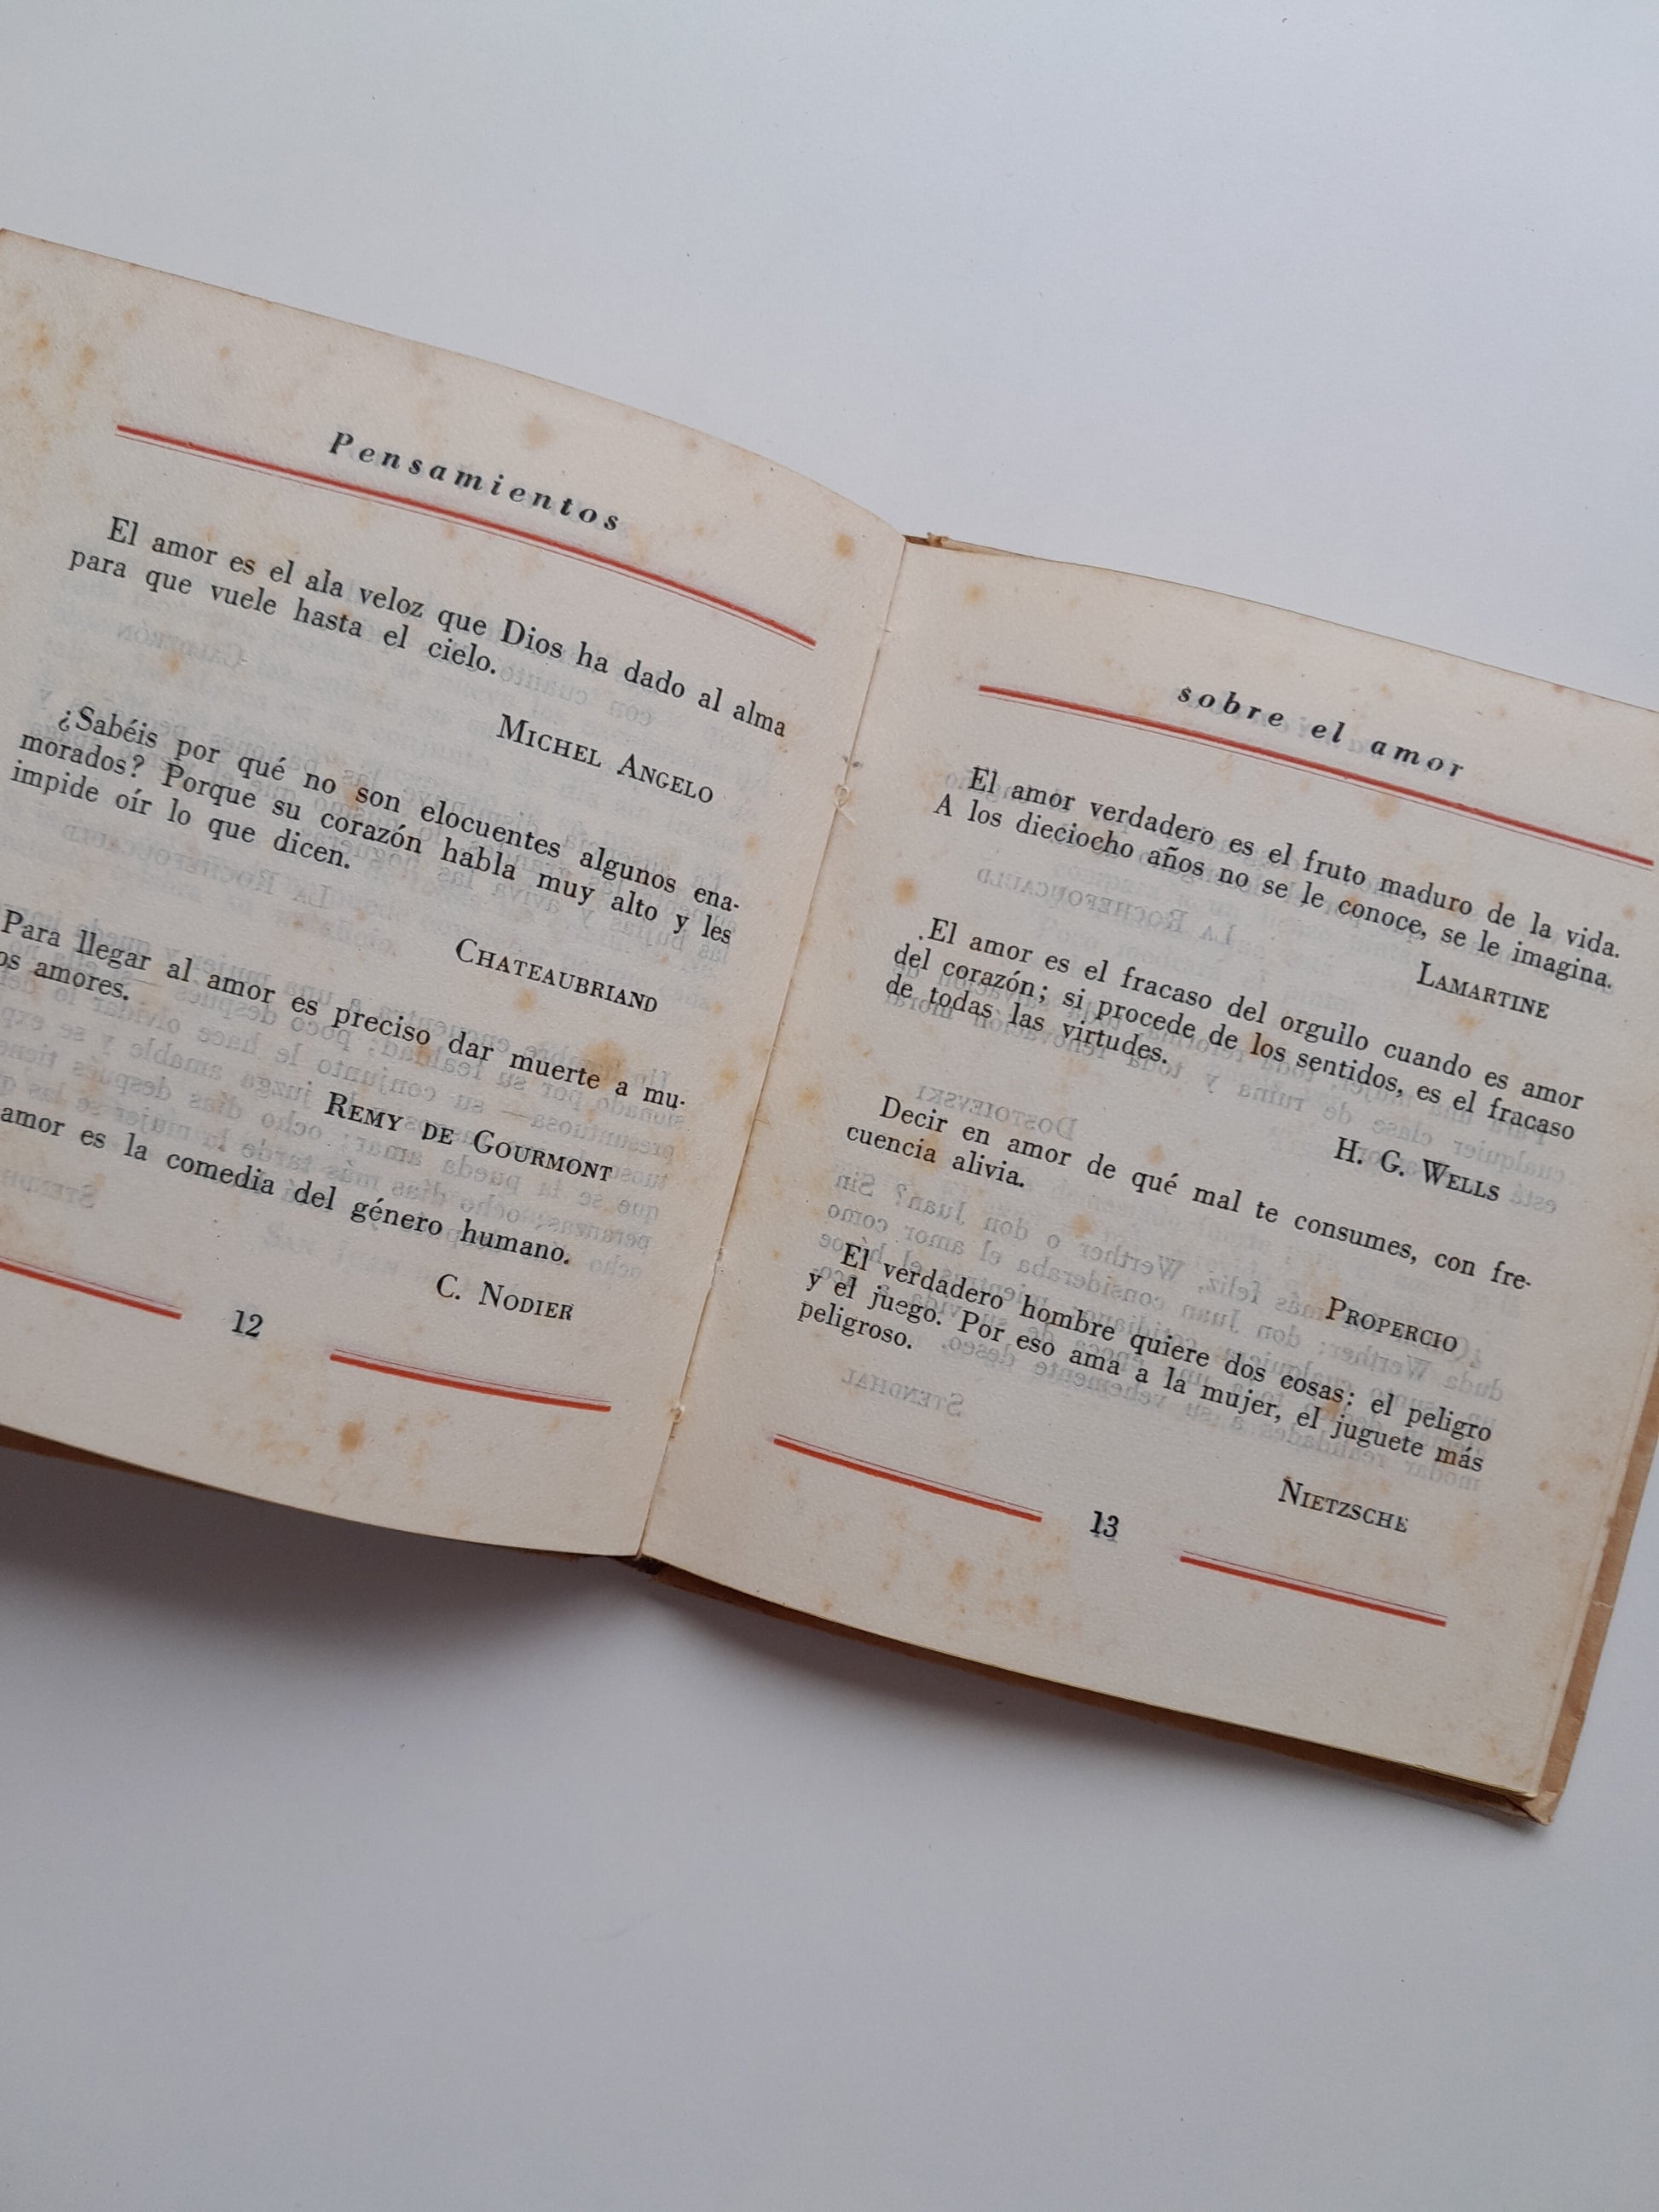 Pensamientos
El amor es el ala veloz que Dios ha dado al alma
para que vuele hasta el cielo.
MICHEL ANGELO
¿Sabéis por qué no son elocuentes algunos ena-
morados? Porque su corazón habla muy alto y les
impide oír lo que dicen.
CHATEAUBRIAND
Para llegar al amor es preciso dar muerte a mu-
os amores.
REMY DE GOURMONT
amor es la comedia del género humano.
C. NODIER
12
sobre el amor
El amor verdadero es el fruto maduro de la vida.
A los dieciocho años no se le conoce, se le imagina.
LAMARTINE
El amor es el fracaso del orgullo cuando es amor
del corazón; si procede de los sentidos, es el fracaso
de todas las virtudes.
H. G. WELLS
Decir en amor de qué mal te consumes, con fre-
cuencia alivia.
PROPERCIO
El verdadero hombre quiere dos cosas: el peligro
y el juego. Por eso ama a la mujer, el juguete más
peligroso.
NIETZSCHE
13